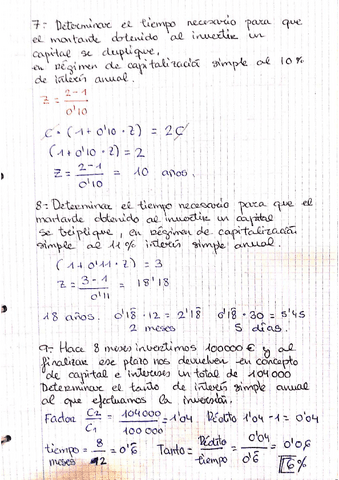 7: Determinar el tiempo necesario para que
el montante obtenido al invertir un
capital se duplique,
en régimen de capitalización simple al 10%
de interés anual.
Z = 2-1 / 0'10
C · (1 + 0'10 · Z) = 2C
(1 + 0'10 · Z) = 2
Z = 2-1 / 0'10 = 10 años.
8: Determinar el tiempo necesario para que el
montante obtenido al invertir un capital
se triplique, en régimen de capitalización
simple al 11% interés simple anual.
(1 + 0'11 · Z) = 3
Z = 3-1 / 0'11 = 18'18
18 años. 0'18 · 12 = 2'18 0'18 · 30 = 5'45
2 meses 5 días.
9- Hace 8 meses invertimos 100000 € y al
finalizar ese plazo nos devuelven en concepto
de capital e intereses un total de 104000
Determinar el tanto de interés simple anual
al que efectuamos la inversión.
Factor C2 / C1 = 104000 / 100000 = 1'04 Rédito 1'04 - 1 = 0'04
tiempo = 8 / 12 = 0'6 Tanto = Rédito / tiempo = 0'04 / 0'6 = 0'06
meses
6%